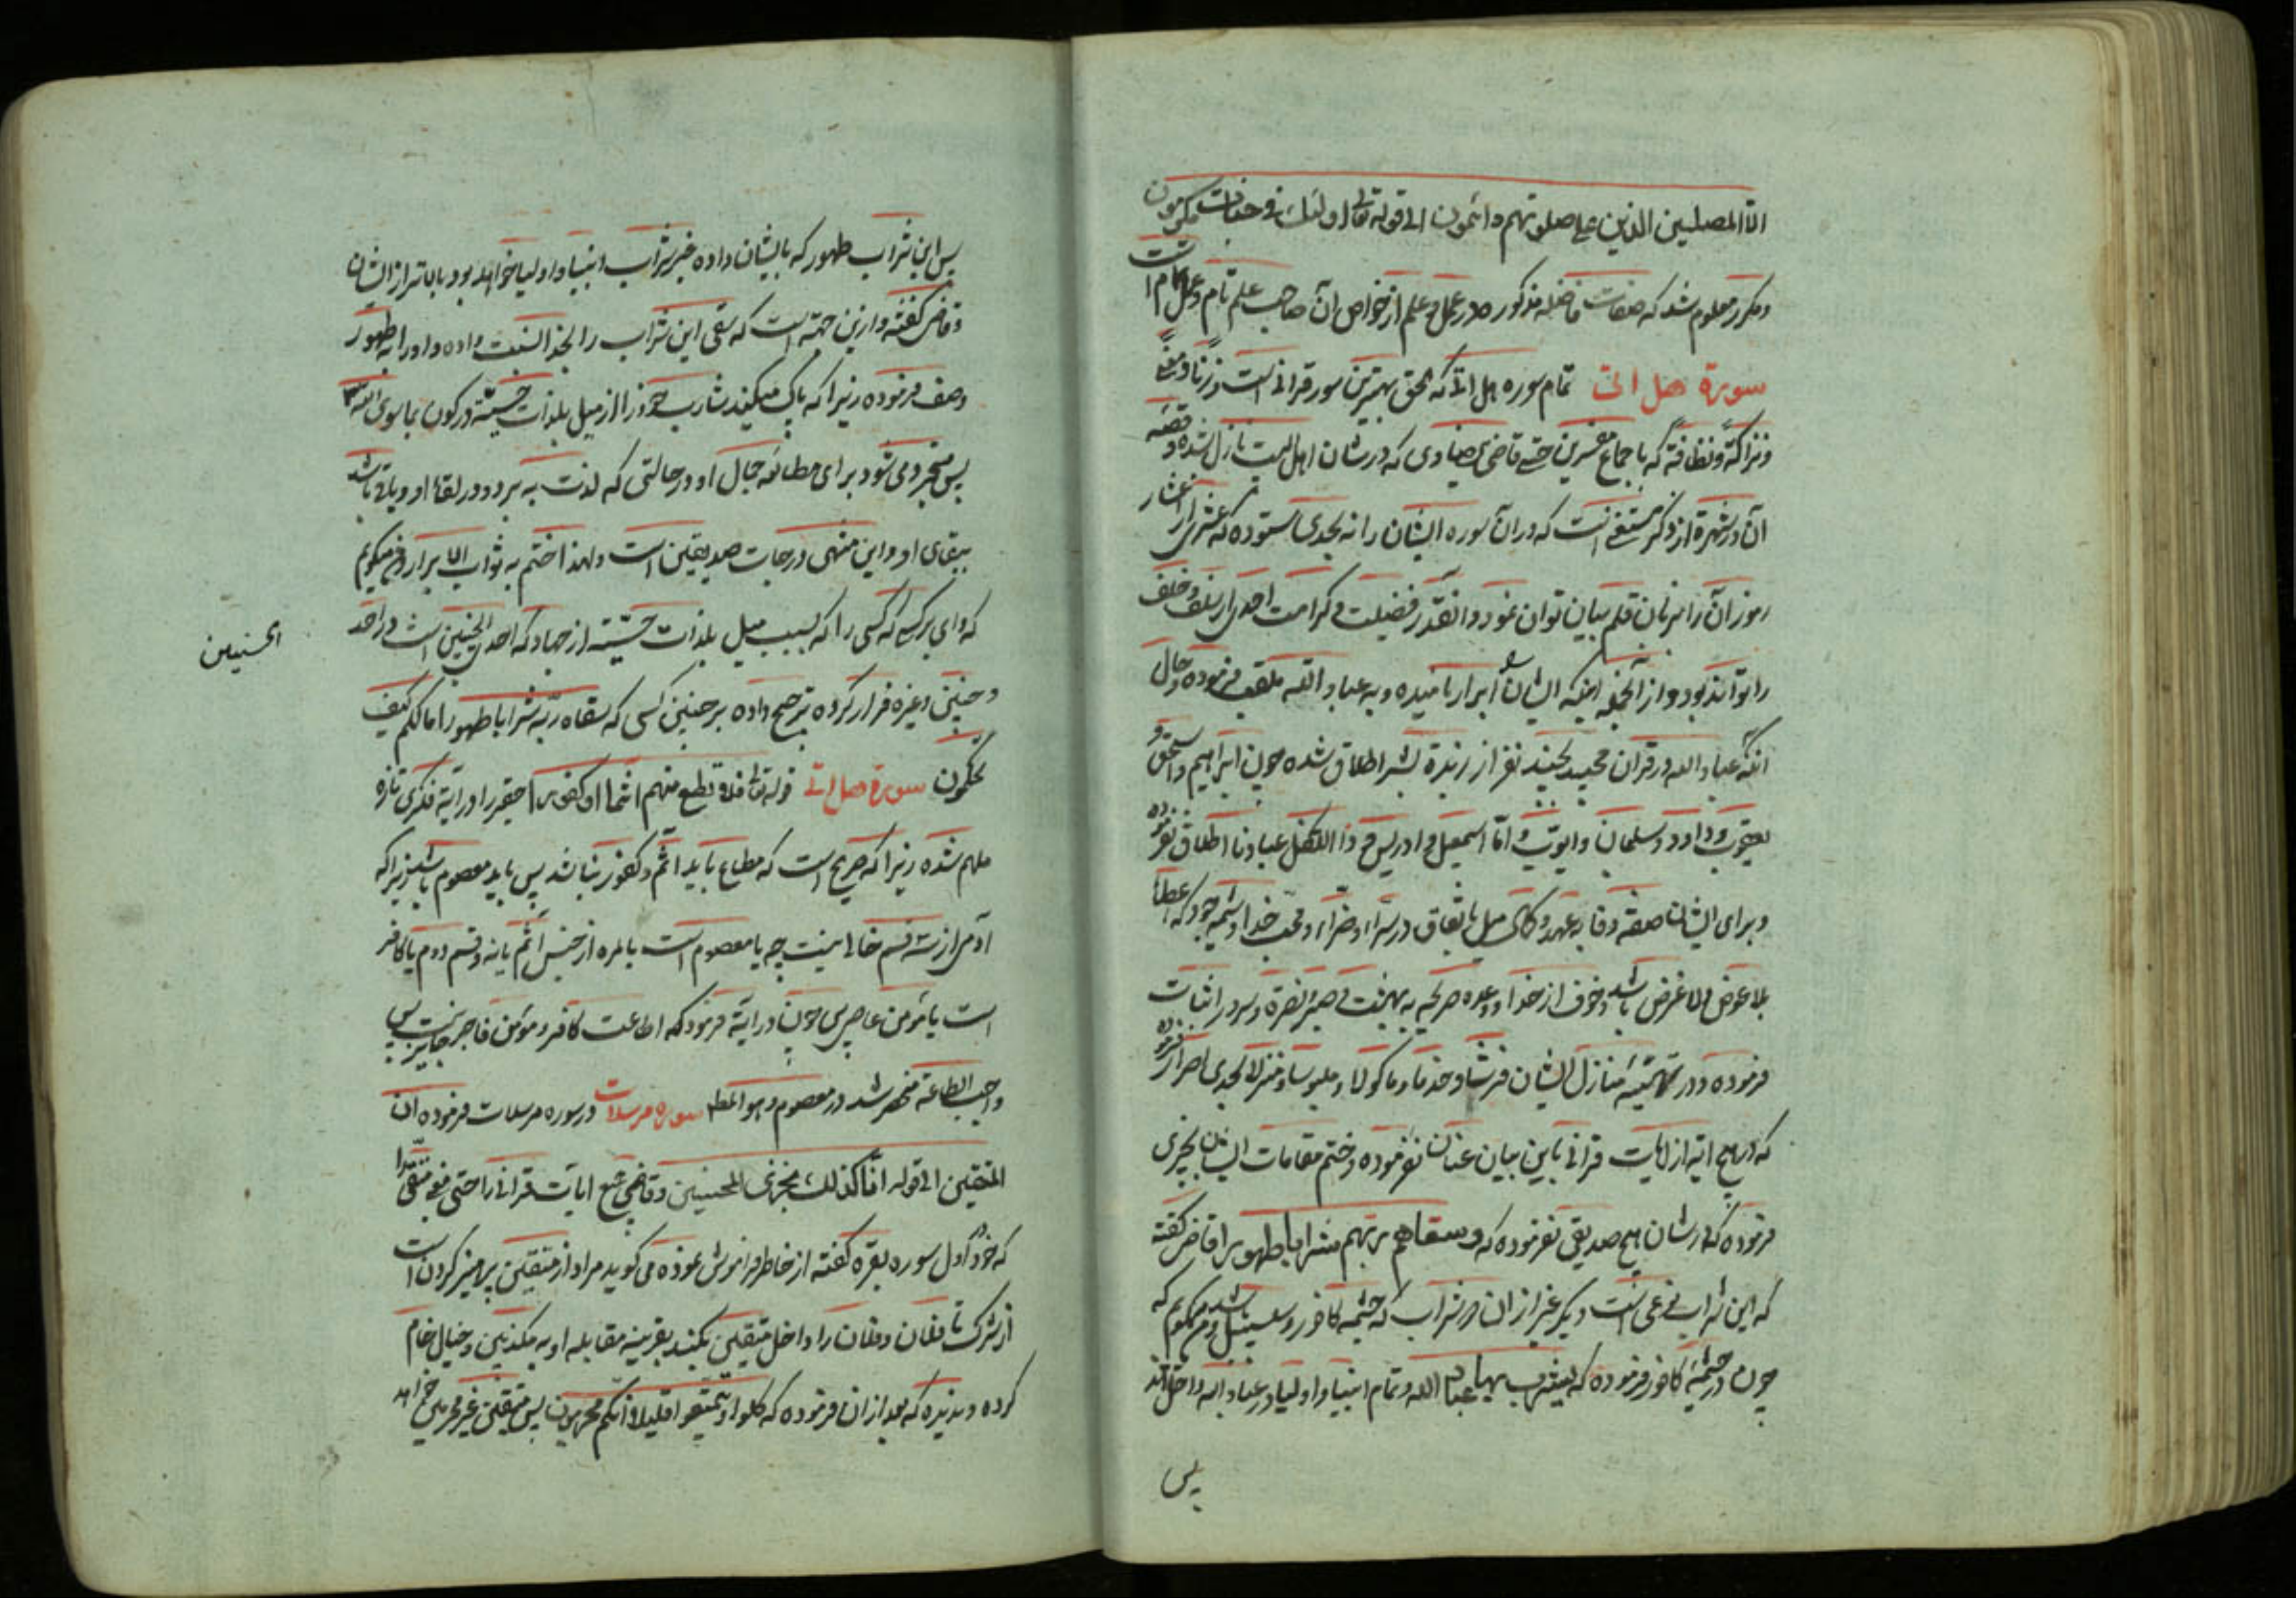 الا المصلین الذین علی صلوتهم دائمون الی قوله تعالی اولئک فی جنات مکرمون
ومکرر معلوم شد که صفات فاضله مذکوره در عمل و علم از خواص آن صاحب علم تام و عمل تام است
سورة هل اتی تمام سوره هل اتی که بحق بهترین سور قرانی است وزنا و معنیً
ونزاکةً ونظافةً که باجماع مفسرین حتی قاضی بیضاوی که در شان اهل بیت نازل شده و قصه
آن در شهرة از ذکر مستغنی است که در آن سوره ایشان را نه بحدی ستوده که عشری از اعشار
رموز آن را بزبان قلم بیان توان نمود و آنقدر فضیلت و کرامت احدی از سلف و خلف
را تواند بود و از آنجمله اینکه ایشان ابرار نامیده و به عباد الله ملقب فرموده و حال
آنکه عباد الله در قران مجید بچند نفر از زبدة بشر اطلاق شده چون ابراهیم و اسحق و
یعقوب و داود و سلیمان و ایوب و اما اسمعیل و ادریس و ذا الکفل عبادنا اطلاق نفرموده
و برای ایشان صفة وفا به عهد و کمال میل بانفاق در سراء و ضراء و محبت خدا و شیمه جود که عطا
بلا عوض و لا غرض باشد و خوف از خدا و وعده صریحه به بهشت و صبر و نضرة و سرور اثبات
فرموده و در تهیئه منازل ایشان فرشا و خدما و ماکولا و ملبوسا و منزلا بحدی اصرار فرموده
که در هیچ ایه از ایات قرانی باین بیان عنان نفرموده و ختم مقامات ایشان بچیزی
فرموده که در شان هیچ صدیقی نفرموده که وسقاهم ربهم شرابا طهورا قاضی گفته
که این شراب نوعی است دیگر غیر از ان دو شراب که چشمه کافور و سلسبیل باشد و من میگویم که
چون در چشمه کافور فرموده که یشرب بها عباد الله و تمام انبیا و اولیا در عباد الله داخل اند
پس
پس این شراب طهور که بایشان داده غیر شراب انبیا و اولیا خواهد بود بالاتر از ایشان
و قاضی گفته و ازین جهته است که سقی این شراب را بخدا نسبت داده و او را به طهور
وصف فرموده زیرا که پاک میکند شارب خود را از میل بلذات حسیّة و رکون بما سوی الله
پس متجرد می شود برای مطالعه جمال او در حالتی که لذت به برد در لقاء او و باقی باشد
ببقای او و این منتهی درجات صدیقین است ولهذا ختم به ثواب الابرار و من میگویم
که وای بر کسی که کسی را که بسبب میل بلذات حسیّة از جهاد که احدی الحسنیین است در احد
الحسنیین
و حنین و غیره فرار کرده ترجیح داده بر چنین کسی که سقاه ربه شرابا طهورا مالکم کیف
تحکمون سورة هل اتی قوله تعالی فلا تطع منهم اثما او کفورا حقیر را در آیة فکری تازه
ملهم شده زیرا که صریح است که مطاع باید اثم و کفور نباشد پس باید معصوم باشد زیرا که
آدمی از سه قسم خالی نیست چه یا معصوم است بالمره از جنس اثم یا نه و قسم دوم یا کافر
است یا مؤمن عاصی پس چون در ایة فرمود که اطاعت کافر و مؤمن فاجر جایز نیست پس
واجب الطاعة منحصر شد در معصوم و هو المط سوره مرسلات در سوره مرسلات فرموده ان
المتقین الی قوله انا کذلک نجزی المحسنین و قاضی جمیع ایات قرانی را حتی معنی متقی را
که خود اول سوره بقره گفته از خاطر فراموش نموده می گوید مراد از متقین پرهیز کردن است
از شرک تا فلان و فلان را داخل متقین بکند بقرینه مقابله او به مکذبین و خیال خام
کرده و ندیده که بعد از ان فرموده که کلوا و تمتعوا قلیلا انکم مجرمون پس متقین غیر مجرمین خواهد